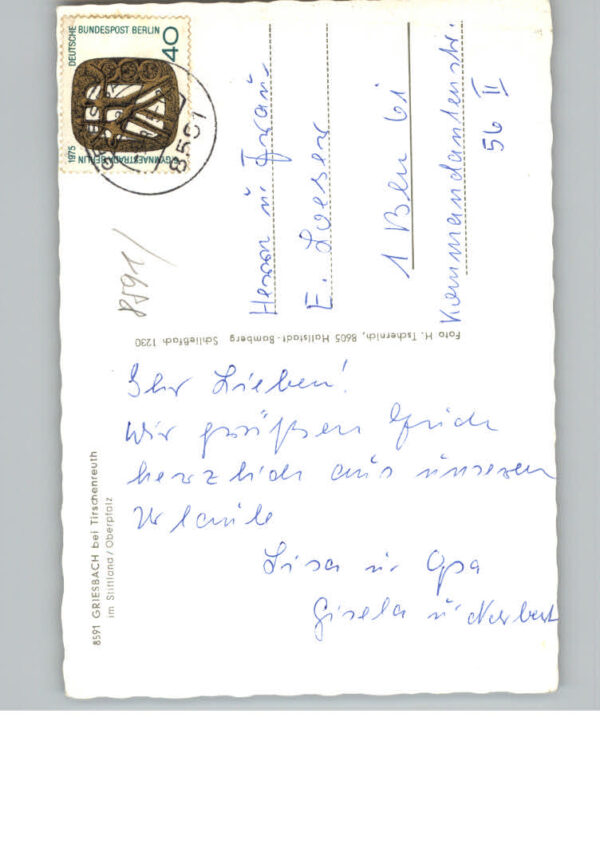 DEUTSCHE BUNDESPOST BERLIN
40
1975
GYMNAESTRADA BERLIN
8591
8591
Herrn u. Frau
E. Loeser
1 Bln 61
Kommandantenstr.
56 II
Foto H. Tschernich, 8605 Hallstadt-Bamberg Schließfach 1230
8591 GRIESBACH bei Tirschenreuth
im Stiftland/Oberpfalz
Ihr Lieben!
Wir grüßen Euch
herzlich aus unseren
Urlaub
Lisa u. Opa
Gisela u. Norbert